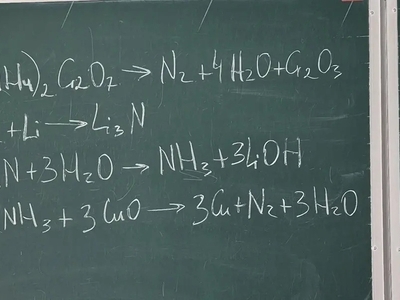 H₄)₂Cr₂O₇ → N₂ + 4H₂O + Cr₂O₃
+ Li → Li₃N
N + 3H₂O → NH₃ + 3LiOH
NH₃ + 3CuO → 3Cu + N₂ + 3H₂O